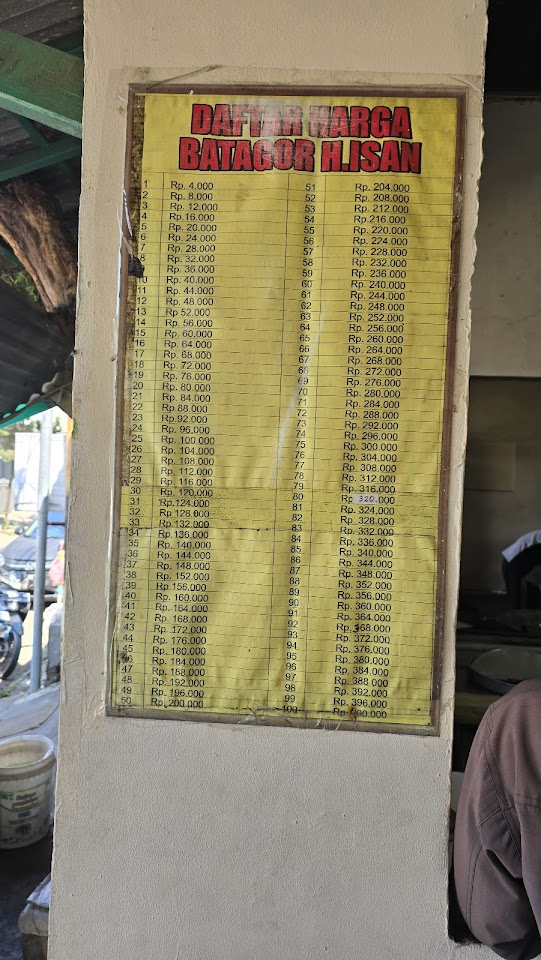 DAFTAR HARGA
BATAGOR H.ISAN
1 Rp. 4.000
2 Rp. 8.000
3 Rp. 12.000
4 Rp.16.000
5 Rp. 20.000
6 Rp. 24.000
7 Rp. 28.000
8 Rp. 32.000
Rp. 36.000
10 Rp. 40.000
11 Rp. 44.000
12 Rp. 48.000
13 Rp 52.000
14 Rp. 56.000
15 Rp. 60.000
16 Rp. 64.000
17 Rp. 68.000
18 Rp. 72.000
19 Rp. 76.000
20 Rp. 80.000
21 Rp. 84.000
22 Rp. 88.000
23 Rp.92.000
24 Rp. 96.000
25 Rp. 100.000
26 Rp. 104.000
27 Rp. 108.000
28 Rp. 112.000
29 Rp. 116.000
30 Rp. 120.000
31 Rp.124.000
32 Rp. 128.000
33 Rp. 132.000
34 Rp. 136.000
35 Rp. 140.000
36 Rp. 144.000
37 Rp. 148.000
38 Rp. 152.000
39 Rp. 156.000
40 Rp. 160.000
41 Rp. 164.000
42 Rp. 168.000
43 Rp. 172.000
44 Rp. 176.000
45 Rp. 180.000
46 Rp. 184.000
47 Rp. 188.000
48 Rp. 192.000
49 Rp. 196.000
50 Rp. 200.000
51 Rp. 204.000
52 Rp. 208.000
53 Rp. 212.000
54 Rp.216.000
55 Rp. 220.000
56 Rp. 224.000
57 Rp. 228.000
58 Rp. 232.000
59 Rp. 236.000
60 Rp. 240.000
61 Rp. 244.000
62 Rp. 248.000
63 Rp. 252.000
64 Rp. 256.000
65 Rp. 260.000
66 Rp. 264.000
67 Rp. 268.000
68 Rp. 272.000
69 Rp. 276.000
70 Rp. 280.000
71 Rp. 284.000
72 Rp. 288.000
73 Rp. 292.000
74 Rp. 296.000
75 Rp. 300.000
76 Rp. 304.000
77 Rp. 308.000
78 Rp. 312.000
79 Rp. 316.000
80 Rp. 320.000
81 Rp. 324.000
82 Rp. 328.000
83 Rp. 332.000
84 Rp. 336.000
85 Rp. 340.000
86 Rp. 344.000
87 Rp. 348.000
88 Rp. 352.000
89 Rp. 356.000
90 Rp. 360.000
91 Rp. 364.000
92 Rp. 368.000
93 Rp. 372.000
94 Rp. 376.000
95 Rp. 380.000
96 Rp. 384.000
97 Rp. 388.000
98 Rp. 392.000
99 Rp. 396.000
100